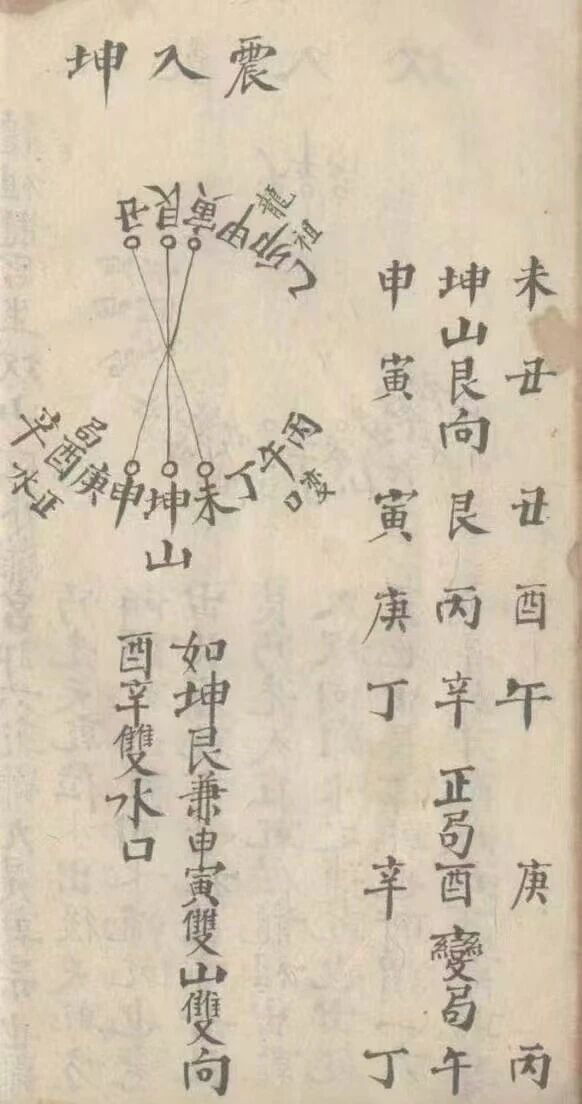 震入坤
丑艮寅
甲卯乙
祖龍
未坤申
山
丁午丙
變口
庚酉辛
正局水
未丑丑酉午庚丙
坤山艮向艮丙辛正局酉變局午
申寅寅庚丁辛丁
如坤艮兼申寅雙山雙向
酉辛雙水口